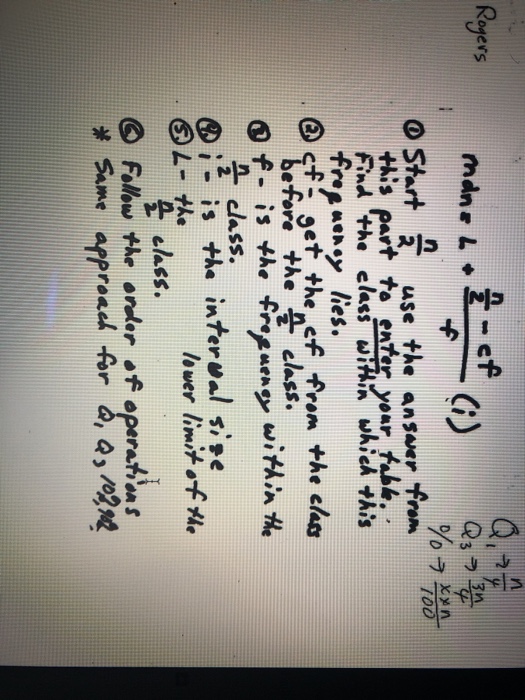 Rogers
mdn = L + n/2 - cf / f (i)
Q1 → n/4
Q3 → 3n/4
% → x×n/100
① Start n/2 use the answer from
this part to enter your table.
Find the class within which this
frequency lies.
② cf - get the cf from the class
before the n/2 class.
③ f - is the frequency within the
n/2 class.
④ i - is the interval size
⑤ L - the lower limit of the
n/2 class.
⑥ Follow the order of operations
* Same approach for Q1 Q3